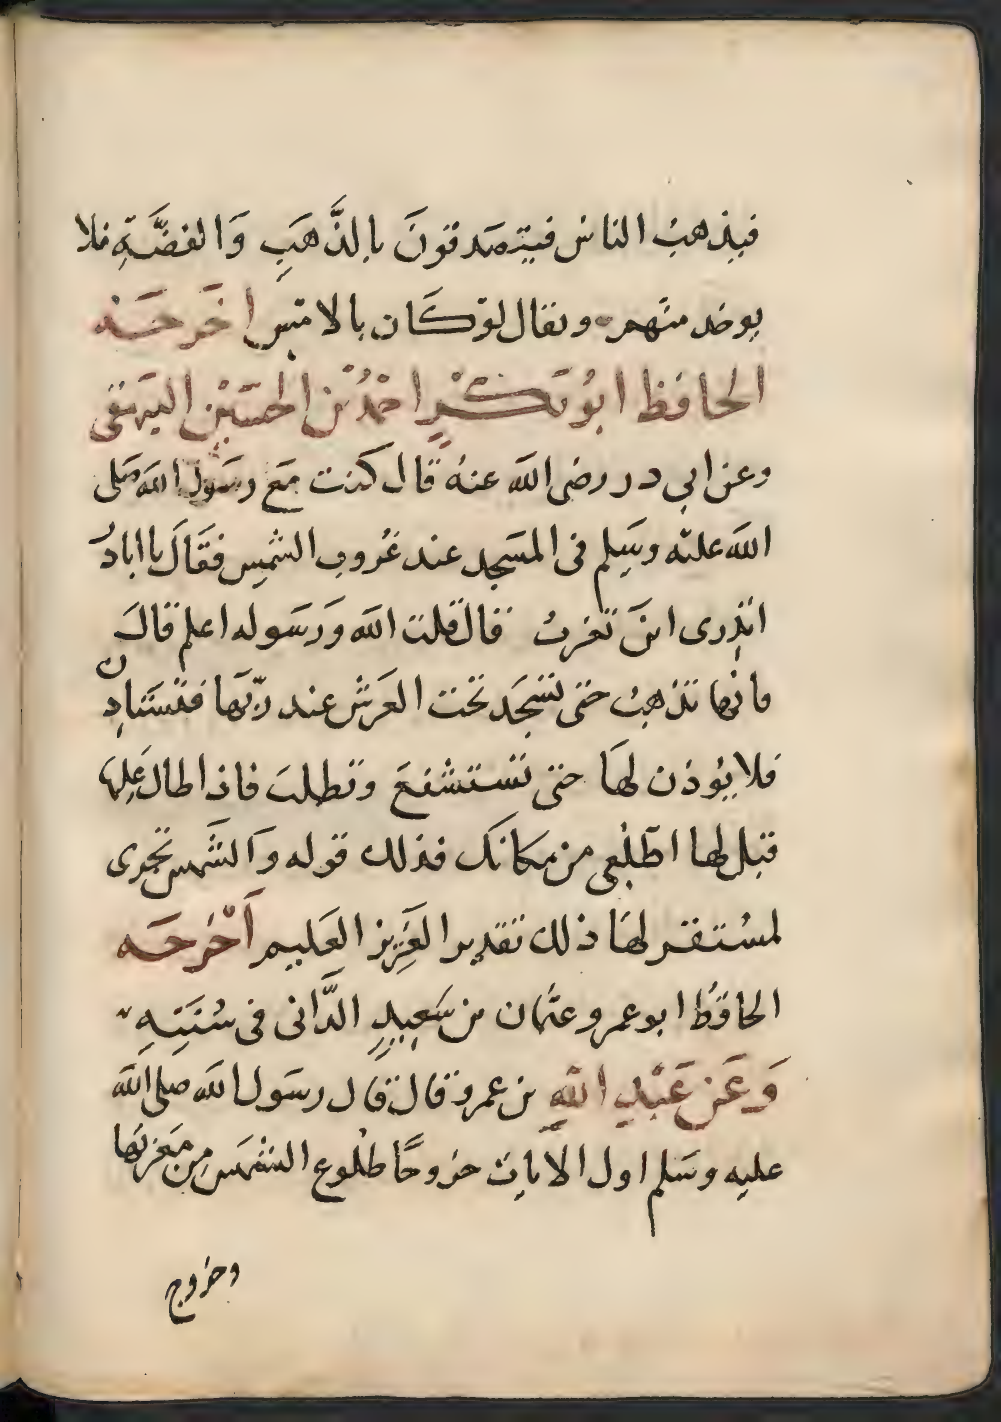 فيذهب الناس فيتصدقون بالذَّهَبِ وَالفضَّةِ فلا
يوخد منهم ويقال لو كَان بالامس اخَرجَه
الحافظ ابُو بَكْرٍ احمدُ بْن الحسَيْن البيهقى
وعن ابى در رضى الله عنهُ قال كنت مَع رسَول الله صَلى
الله عليه وسَلم فى المسَجد عند غُروب الشمس فقَالَ يا اباذُ
اتدرى اينَ تغربُ فقال قلت الله وَرَسَوله اعلم قالَ
فانها تذهبُ حتى تسْجَد تحَت العَرش عند ربّهَا فتسَتاذِن
فلا يُوذن لهَا حتى تستشفعَ وتطلبَ فاذا طال عَليها
قيل لها اطّلُعى من مكانك فذلك قوله وَالشَّمس تجَرى
لمسُتقر لهَا ذلك تقدير العَزِيز العَليم اَخْرجَه
الحافظُ ابو عمرو عثمان بن سَعِيدٍ الدَّانى فى سُنَنِهِ
وَعَن عَبْدِ اللهِ بن عمرو قال قال رسَول الله صَلى الله
عليه وسَلم اول الايات خروجًا طُلوع الشمَس مِن مَغربهَا
وخروج